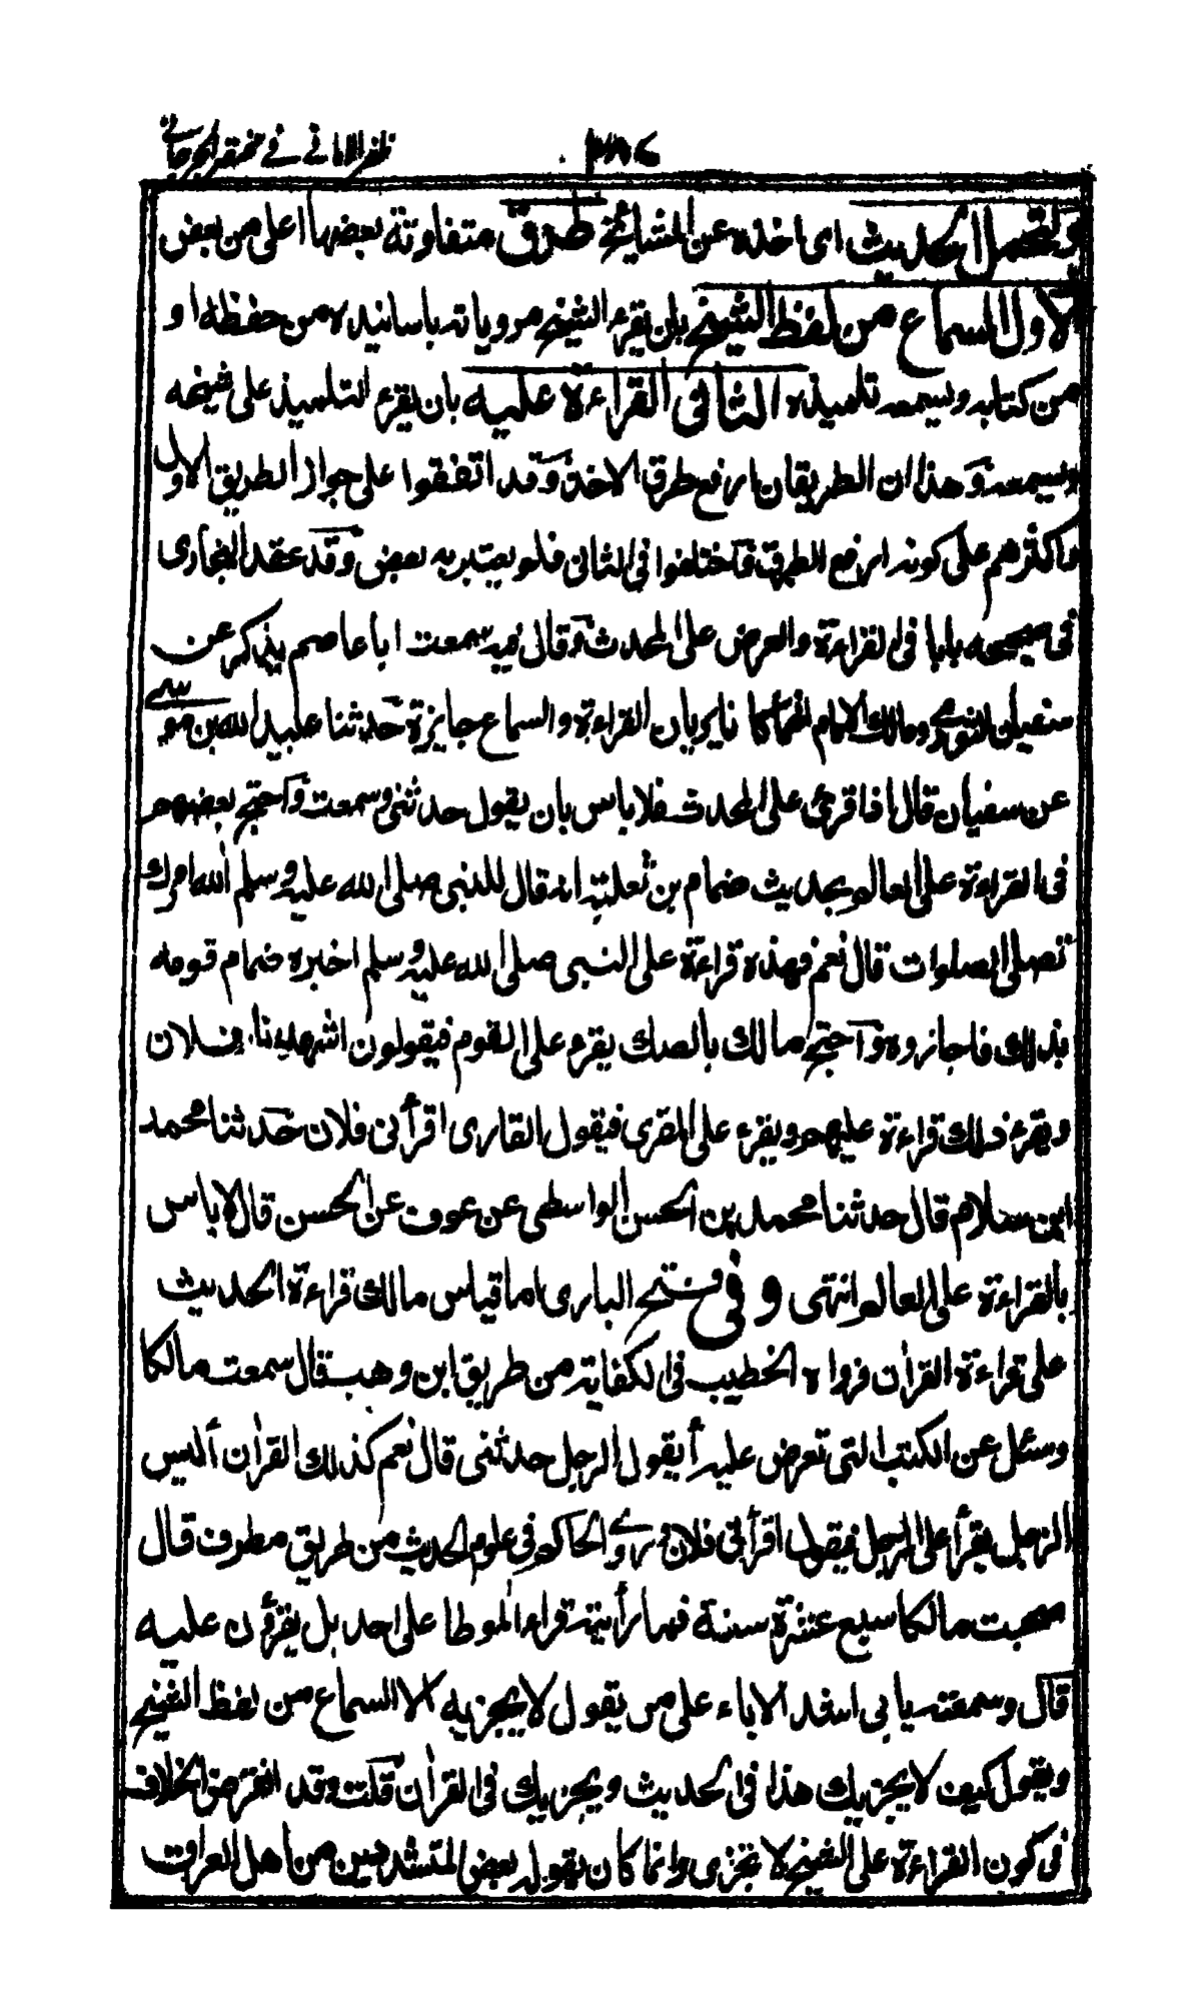 ظفر الامانی فی مختصر الجرجانی
٢٨٧
ولتحمل الحدیث ای اخذه عن المشائخ طرق متفاوتة بعضها اعلی من بعض
الاول السماع من لفظ الشیخ بان یقرء الشیخ مرویاته باسانیده من حفظه او
من کتابه ویسمعه تلمیذه الثانی القراءة علیه بان یقرء التلمیذ علی شیخه
ویسمعه وهذان الطریقان ارفع طرق الاخذ وقد اتفقوا علی جواز الطریق الاول
واکثرهم علی کونه ارفع الطرق واختلفوا فی الثانی فلم یعتبر به بعض وقد عقد البخاری
فی صحیحه بابا فی القراءة والعرض علی المحدث وقال فیه سمعت ابا عاصم یذکر عن
سفیان الثوری ومالک الامام انهما کانا یریان القراءة والسماع جایزة حدثنا عبید الله بن موسی
عن سفیان قال اذا قرئ علی المحدث فلا باس بان یقول حدثنی وسمعت واحتج بعضهم
فی القراءة علی العالم بحدیث ضمام بن ثعلبة انه قال للنبی صلی الله علیه وسلم آلله امرک
تصلی الصلوات قال نعم فهذه قراءة علی النبی صلی الله علیه وسلم اخبره ضمام قومه
بذلک فاجازوه واحتج مالک بالصک یقرء علی القوم فیقولون اشهدنا فلان
ویقرء ذلک قراءة علیهم ویقرء علی المقری فیقول القاری اقرأنی فلان حدثنا محمد
ابن سلام قال حدثنا محمد بن الحسن الواسطی عن عوف عن الحسن قال لا باس
بالقراءة علی العالم انتهی وفی فتح الباری اما قیاس مالک قراءة الحدیث
علی قراءة القرآن فرواه الخطیب فی الکفایة من طریق ابن وهب قال سمعت مالکا
وسئل عن الکتب التی تعرض علیه أیقول الرجل حدثنی قال نعم کذلک القرآن ألیس
الرجل یقرأ علی الرجل فیقول اقرأنی فلان وروی الحاکم فی علوم الحدیث من طریق مطرف قال
صحبت مالکا سبع عشرة سنة فما رأیته قرا الموطا علی احد بل یقرؤن علیه
قال وسمعته یابی اشد الاباء علی من یقول لا یجزیه الا السماع من لفظ الشیخ
ویقول کیف لا یجزیک هذا فی الحدیث ویجزیک فی القرآن قلت وقد انقرض الخلاف
فی کون القراءة علی الشیخ لا تجزی وانما کان یقوله بعض المتشددین من اهل العراق